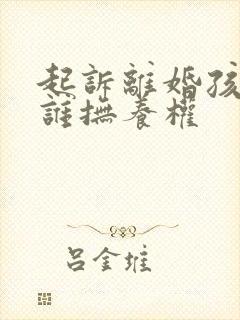 起訴離婚孩
誰撫養權
呂金維